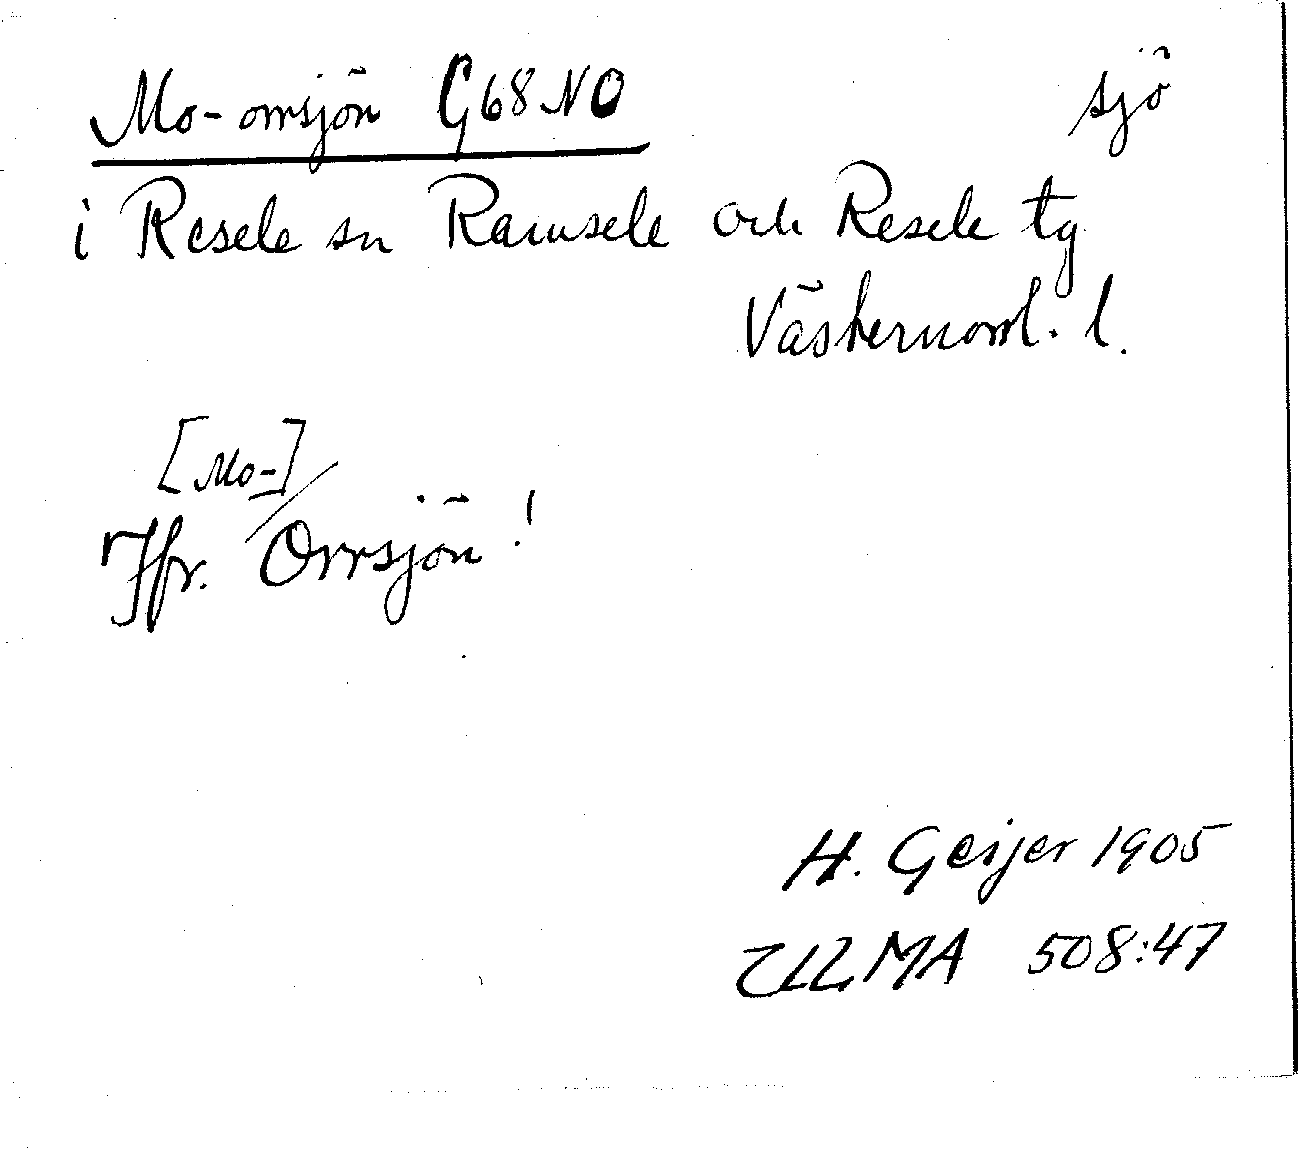 Mo-orrsjön G68NO sjö
i Resele sn Ramsele och Resele tg
Västernorrl. l.
[Mo-]
Jfr. Orrsjön!
H. Geijer 1905
ULMA 508:47